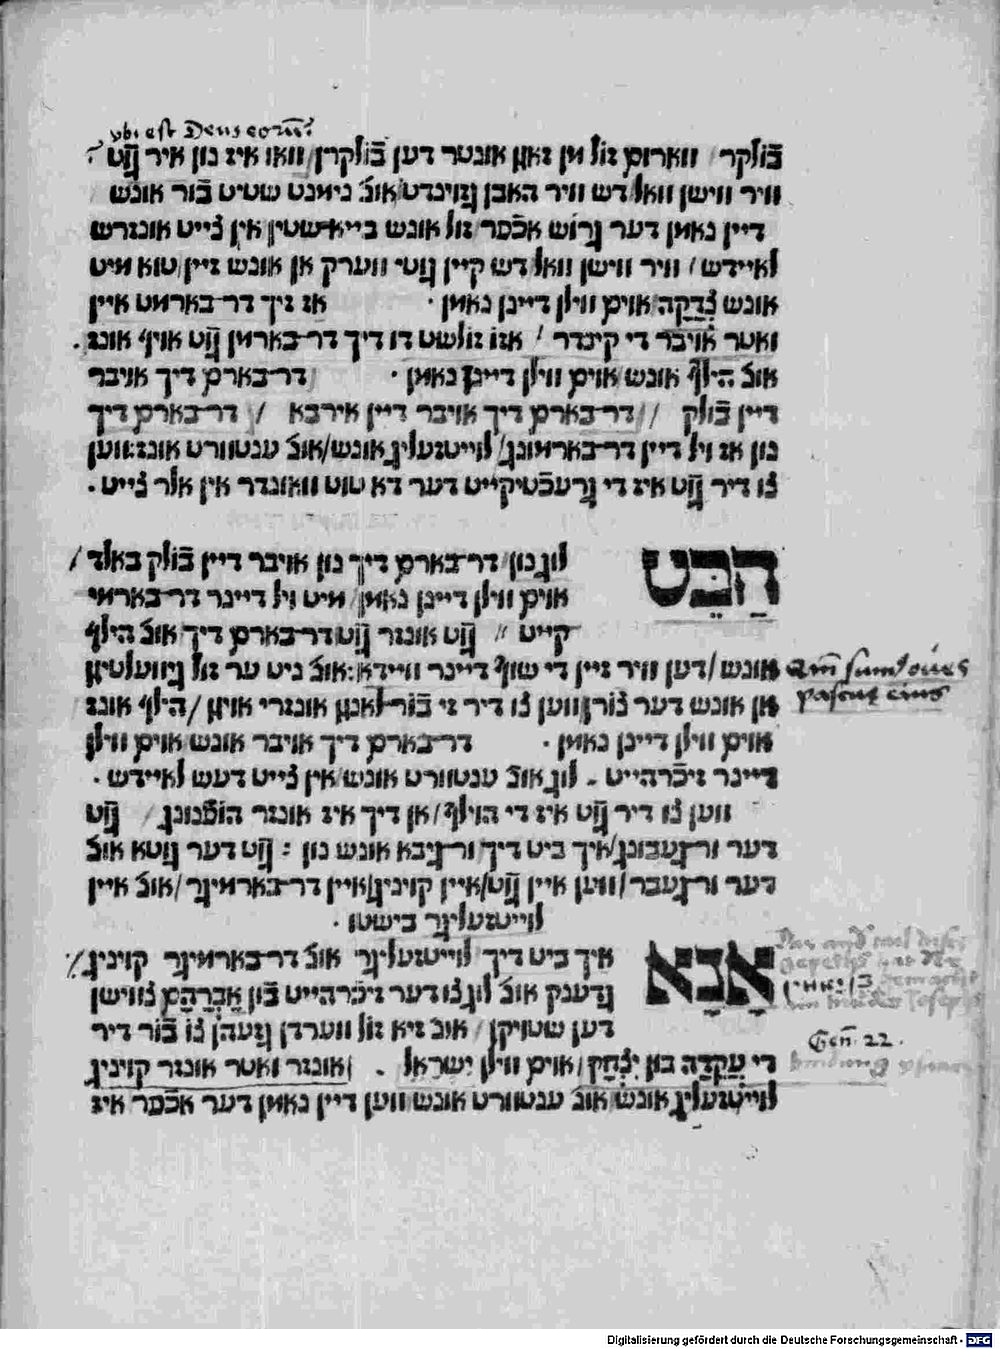 vbi est Deus eorum?
בֿולקר / ווארום זול מן זאגן אונטר דען בֿולקרן / וואו איז נון איר גֿוט ?
וויר ווישן וואל דש וויר האבן גזוינדט / אונ' נימנט שטיט בֿור אונש
דיין נאמן דער גרוש אכֿפר זול אונש בייא שטין אין צייט אונזרש
לאיידש / וויר ווישן וואל דש קיין גוטי ווערק אן אונש זיין / טוא מיט
אונש צְדָקָה אויס ווילן דיינן נאמן · אז זיך דר בארמט איין
ואטר אויבר די קינדר / אזו זולשט דו דיך דר בארמן גֿוט אויף אונז ·
אונ' הילף אונש אויס ווילן דיינן נאמן · / דר בארם דיך אויבר
דיין בֿולק // דר בארם דיך אויבר דיין אירבא / דר בארם דיך
נון אז ויל דיין דר בארמונג / לוייטזעליג אונש / אונ' ענטוורט אונז : ווען
צו דיר גֿוט איז די גרעכֿטיקייט דער דא טוט וואונדר אין אלר צייט ·
הַבֵּט לוג נון / דר בארם דיך נון אויבר דיין בֿולק באלד /
אויס ווילן דיינן נאמן / מיט ויל דיינר דר בארמי
קייט // גֿוט אונזר גֿוט דר בארם דיך אונ' הילף
אונש / דען וויר זיין די שוף דיינר וויידא : אונ' ניט ער זול גוועלטיגן
an sumus oues
pascue eius
אן אונש דער צורן ווען צו דיר זי בֿור לאנגן אונזרי אויגן / הילף אונז
אויס ווילן דיינן נאמן · דר בארם דיך אויבר אונש אויס ווילן
דיינר זיכֿרהייט - לוג אונ' ענטוורט אונש אין צייט דעש לאיידש ·
ווען צו דיר גֿוט איז די הוילף / אן דיך איז אונזר הופֿנונג / גֿוט
דער ור געבונג / איך ביט דיך ור גיבא אונש נון : גֿוט דער גוטא אונ'
דער ור געבר / ווען איין גֿוט / איין קויניג / איין דר בארמיגר / אונ' איין
לוייטזעליגר בישטו ·
אָנָּא איך ביט דיך לוייטזעליגר אונ' דר בארמיגר קויניג /
גדענק אונ' לוג צו דער זיכֿרהייט בֿון אַבְרָהָם צווישן
דען שטויקן / אונ' זיא זול ווערדן גזעהן צו בֿור דיר
Gen. 22.
די עֲקֵדָה בון יִצְחָק / אויס ווילן ישראל · / אונזר ואטר אונזר קויניג
לוייטזעליג אונש אונ' ענטוורט אונש ווען דיין נאמן דער אכֿפר איז
Digitalisierung gefördert durch die Deutsche Forschungsgemeinschaft - DFG